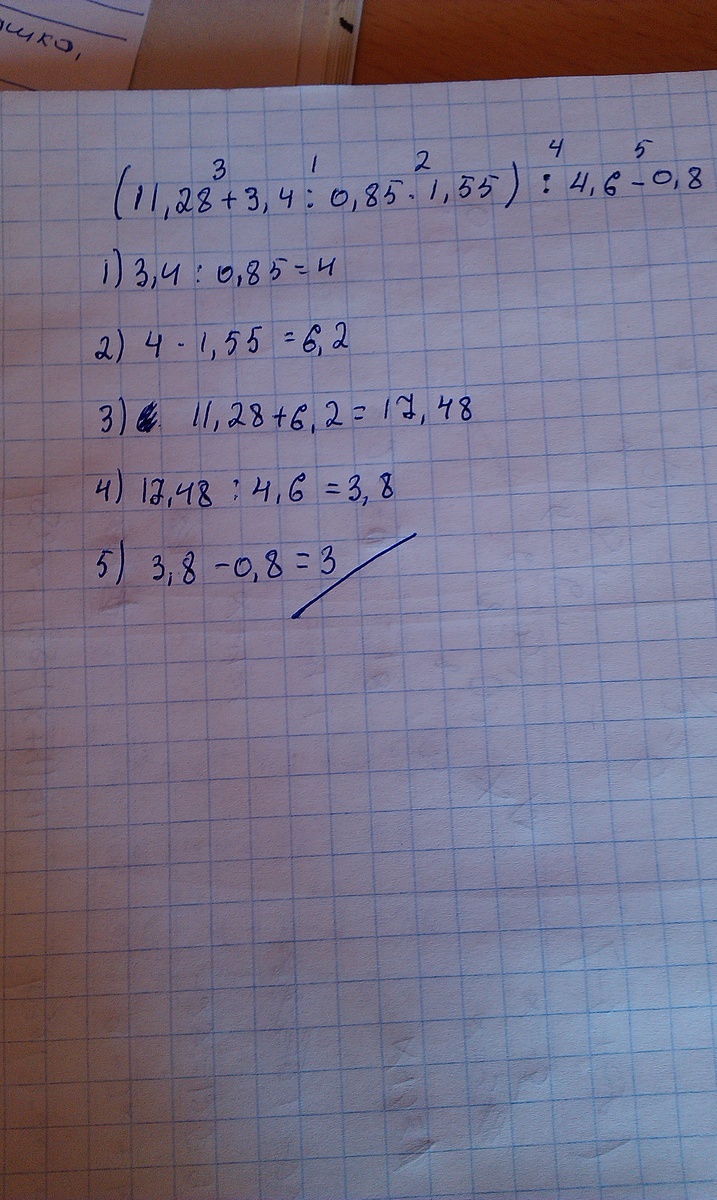 3 1 2 4 5
(11,28+3,4:0,85·1,55):4,6-0,8
1) 3,4:0,85=4
2) 4·1,55=6,2
3) 11,28+6,2=17,48
4) 17,48:4,6=3,8
5) 3,8-0,8=3